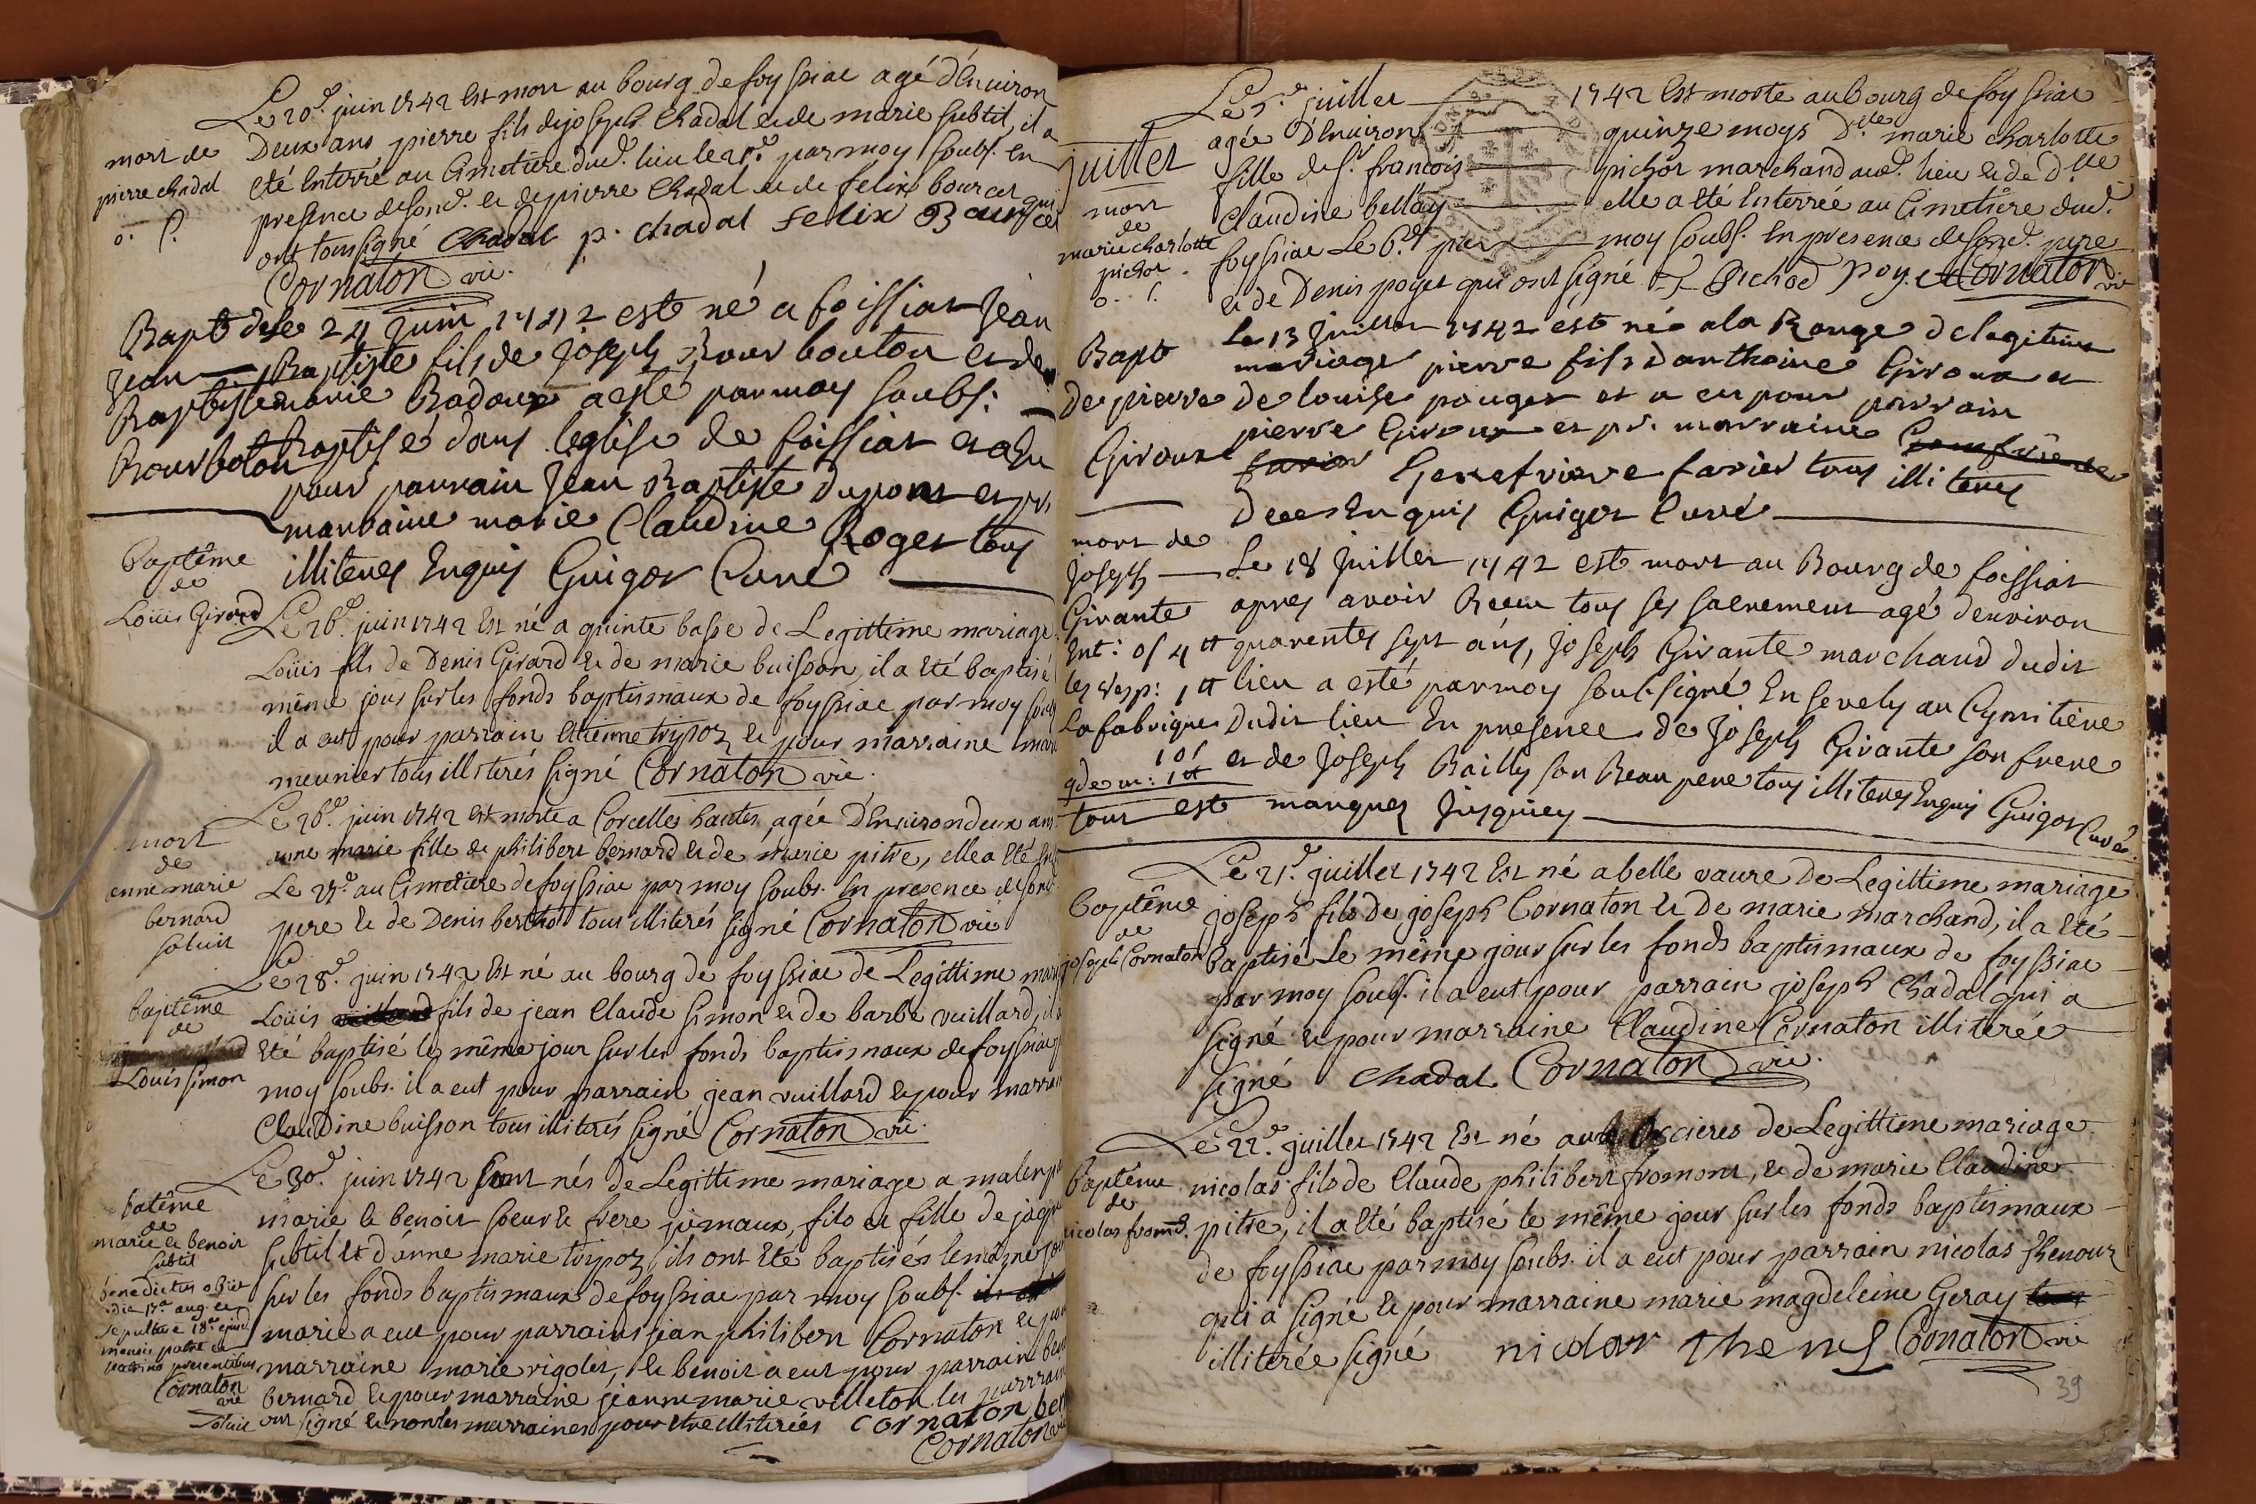 Le 20.e juin 1742 Est mort au bourg de foyssiac agé d'Environ
Deux ans pierre fils de joseph Chadal et de marie subtil, il a
mort de
pierre chadal
o. s.
eté Enterré au Cimetiere dud. lieu le 21.e par moy soubs. En
presence de sond. et de pierre Chadal et de felix bourcet qui
ont tous signé Chadal p. chadal felix Bourcet
Cornaton vic.
Bapt de Le 24 Juin 1742 est né a foissiat Jean
Jean Baptiste fils de Joseph Bourboulon et de
Baptiste marie Badoux a esté par moy soubs:
Bourboton Baptisé dans leglise de foissiat et a Eu
pour parrain Jean Baptiste Dupont et pr.
marraine marie Claudine Roget tous
illiterez Enquis Guigot Curé
baptême
de
Loüis Girard
Le 26.e juin 1742 Est né a quinte basse de Legittime mariage
Loüis fils de Denis Girard et de marie buisson, il a Eté baptisé
même jour sur les fonds baptismaux de foyssiac par moy soubs
il a eut pour parrain Etienne tripoz et pour marraine marie
meunier tous illiterés signé Cornaton vic.
mort
de
anne marie
bernard
solvit
Le 26.e juin 1742 est morte a Corcelles hautes, agée D'Environ deux ans
anne marie fille de philibert bernard et de marie pitre, elle a Eté
Le 27.e au Cimetiere de foyssiac par moy soubs. En presence de sond.
pere et de Denis berthod tous illiterés signé Cornaton vic
baptême
de
Loüis simon
Le 28.e juin 1742 Est né au bourg de foyssiac de Legittime
Loüis fils de jean Claude simon et de barbe vuillard, il a
Eté baptisé le même jour sur les fonds baptismaux de foyssiac
moy soubs. il a eut pour parrain jean vuillard et pour marraine
Claudine buisson tous illiterés signé Cornaton vic.
batême
de
marie et benoit
subtil
benedictus obiit
die 17.a aug. et
sepultus e 18.a ejusd.
mensis patre et
patrino presentibus
Cornaton
vic
solvit
Le 30.e juin 1742 sont nés de Legittime mariage a
marie et benoit soeur et frere jumaux, fils et fille de
subtil et d'anne marie tripoz, ils ont Eté baptisés le même jour
sur les fonds baptismaux de foyssiac par moy soubs.
marie a eut pour parrains jean philibert Cornaton et pour
marraine marie rigolet, et benoit a eut pour parrain
bernard et pour marraine jeanne marie villeton les parrains
ont signé et non les marraines pour Etre illiterées Cornaton
Cornaton vic
juillet
mort
de
marie charlotte
pichot
o. s.
Le 5.e juillet 1742 Est morte au bourg de foyssiac
agée D'Environ quinze moys D.elle marie charlotte
fille de s.r francois pichot marchand aud. lieu et de d.lle
Claudine bellay elle a Eté Enterrée au Cimetiere dud.
foyssiac Le 6.e par moy soubs. En presence de sond. pere
et de Denis poyet qui ont signé F Pichod Poy. et Cornaton vic
Bapt
de pierre
Giroux
Le 13 Juillet 1742 est né a la Rouge de legitime
mariage pierre fils danthoine Giroux et
de louise pouget et a eu pour parrain
pierre Giroux et pr. marraine
Genefvieve farier tous illiterez
de ce Enquis Guigot Curé
mort de
Joseph
Girante
Ent: of 4 tt
les vesp: 1 tt
la fabrique
10 s
gde m: 1 tt
Le 18 Juillet 1742 est mort au Bourg de foissiat
apres avoir Receu tous ses sacrements agé denviron
quarentes sept ans, Joseph Girante marchand dudit
lieu a esté par moy soubsigné Ensevely au Cymitiere
dudit lieu En presence de Joseph Girante son frere
et de Joseph Bailly son Beau pere tous illiterez Enquis Guigot Curé
tout est marquez jusquicy
baptême
de
joseph Cornaton
Le 21.e juillet 1742 Est né a belle vavre de Legittime mariage
joseph fils de joseph Cornaton et de marie marchand, il a Eté
baptisé Le même jour sur les fonds baptismaux de foyssiac
par moy soubs. il a eut pour parrain joseph Chadal qui a
signé et pour marraine Claudine Cornaton illiterée
signé Chadal Cornaton vic.
baptême
de
nicolas from.t
Le 22.e juillet 1742 Est né de Legittime mariage
nicolas fils de Claude philibert fromont, et de marie Claudine
pitre, il a Eté baptisé le même jour sur les fonds baptismaux
de foyssiac par moy soubs. il a eut pour parrain nicolas thenoux
qui a signé et pour marraine marie magdeleine Geray
illiterée signé nicolas Cornaton vic
39